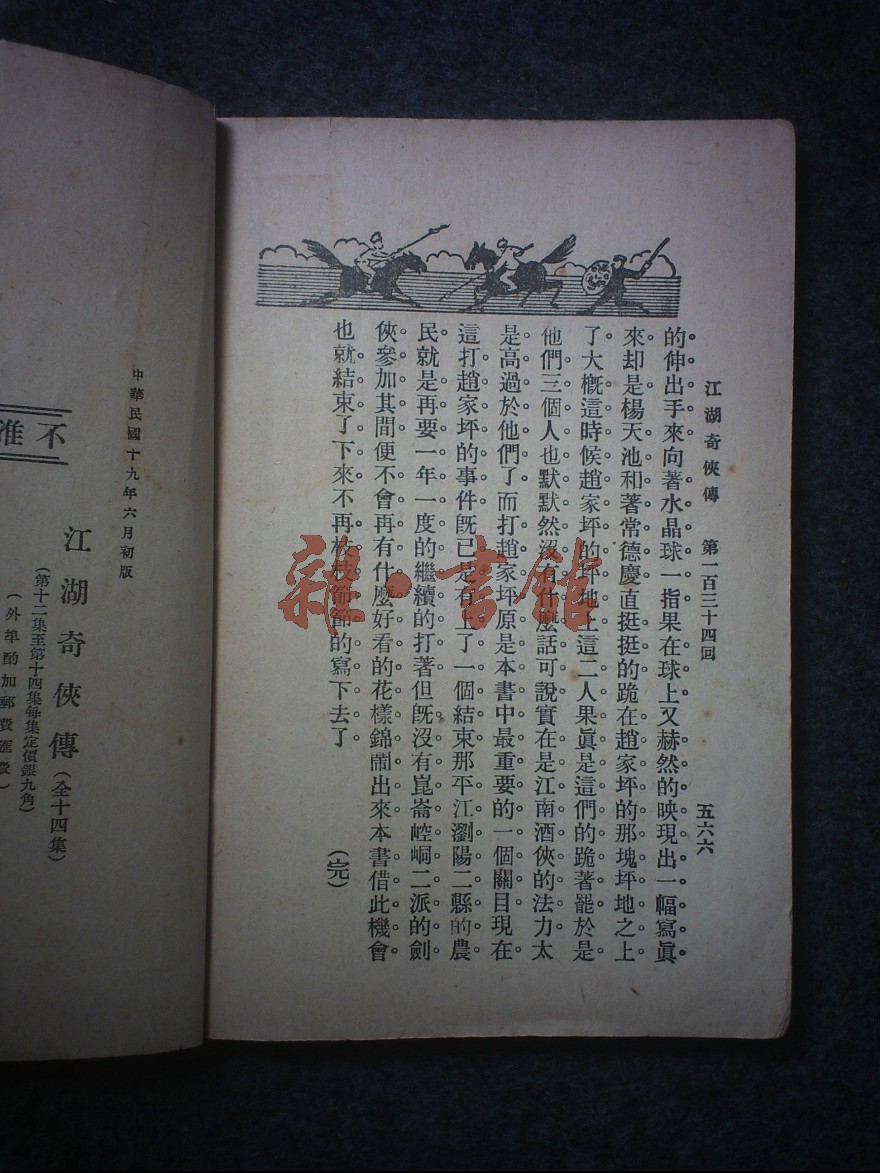 江湖奇俠傳　第一百三十四回　五六六
的伸出手來向著水晶球一指果在球上又赫然的映現出一幅寫眞
來却是楊天池和著常德慶直挺挺的跪在趙家坪的那塊坪地之上
了大槪這時候趙家坪的坪地上這二人果眞是這們的跪著罷於是
他們三個人也默默然沒有什麼話可說實在是江南酒俠的法力太
是高過於他們了而打趙家坪原是本書中最重要的一個關目現在
這打趙家坪的事件旣已是有上了一個結束那平江瀏陽二縣的農
民就是再要一年一度的繼續的打著但旣沒有崑崙崆峒二派的劍
俠參加其間便不會再有什麼好看的花樣錦鬧出來本書借此機會
也就結束了下來不再枝枝節節的寫下去了
（完）
中華民國十九年六月初版
不准
江湖奇俠傳（全十四集）
（第十二集至第十四集每集定價銀九角）
（外埠酌加郵費匯費）
雜·書館